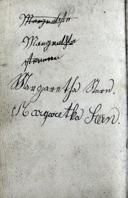 Margreatha
Margreatha
Margaretha Stern.
Margaretha Stern.